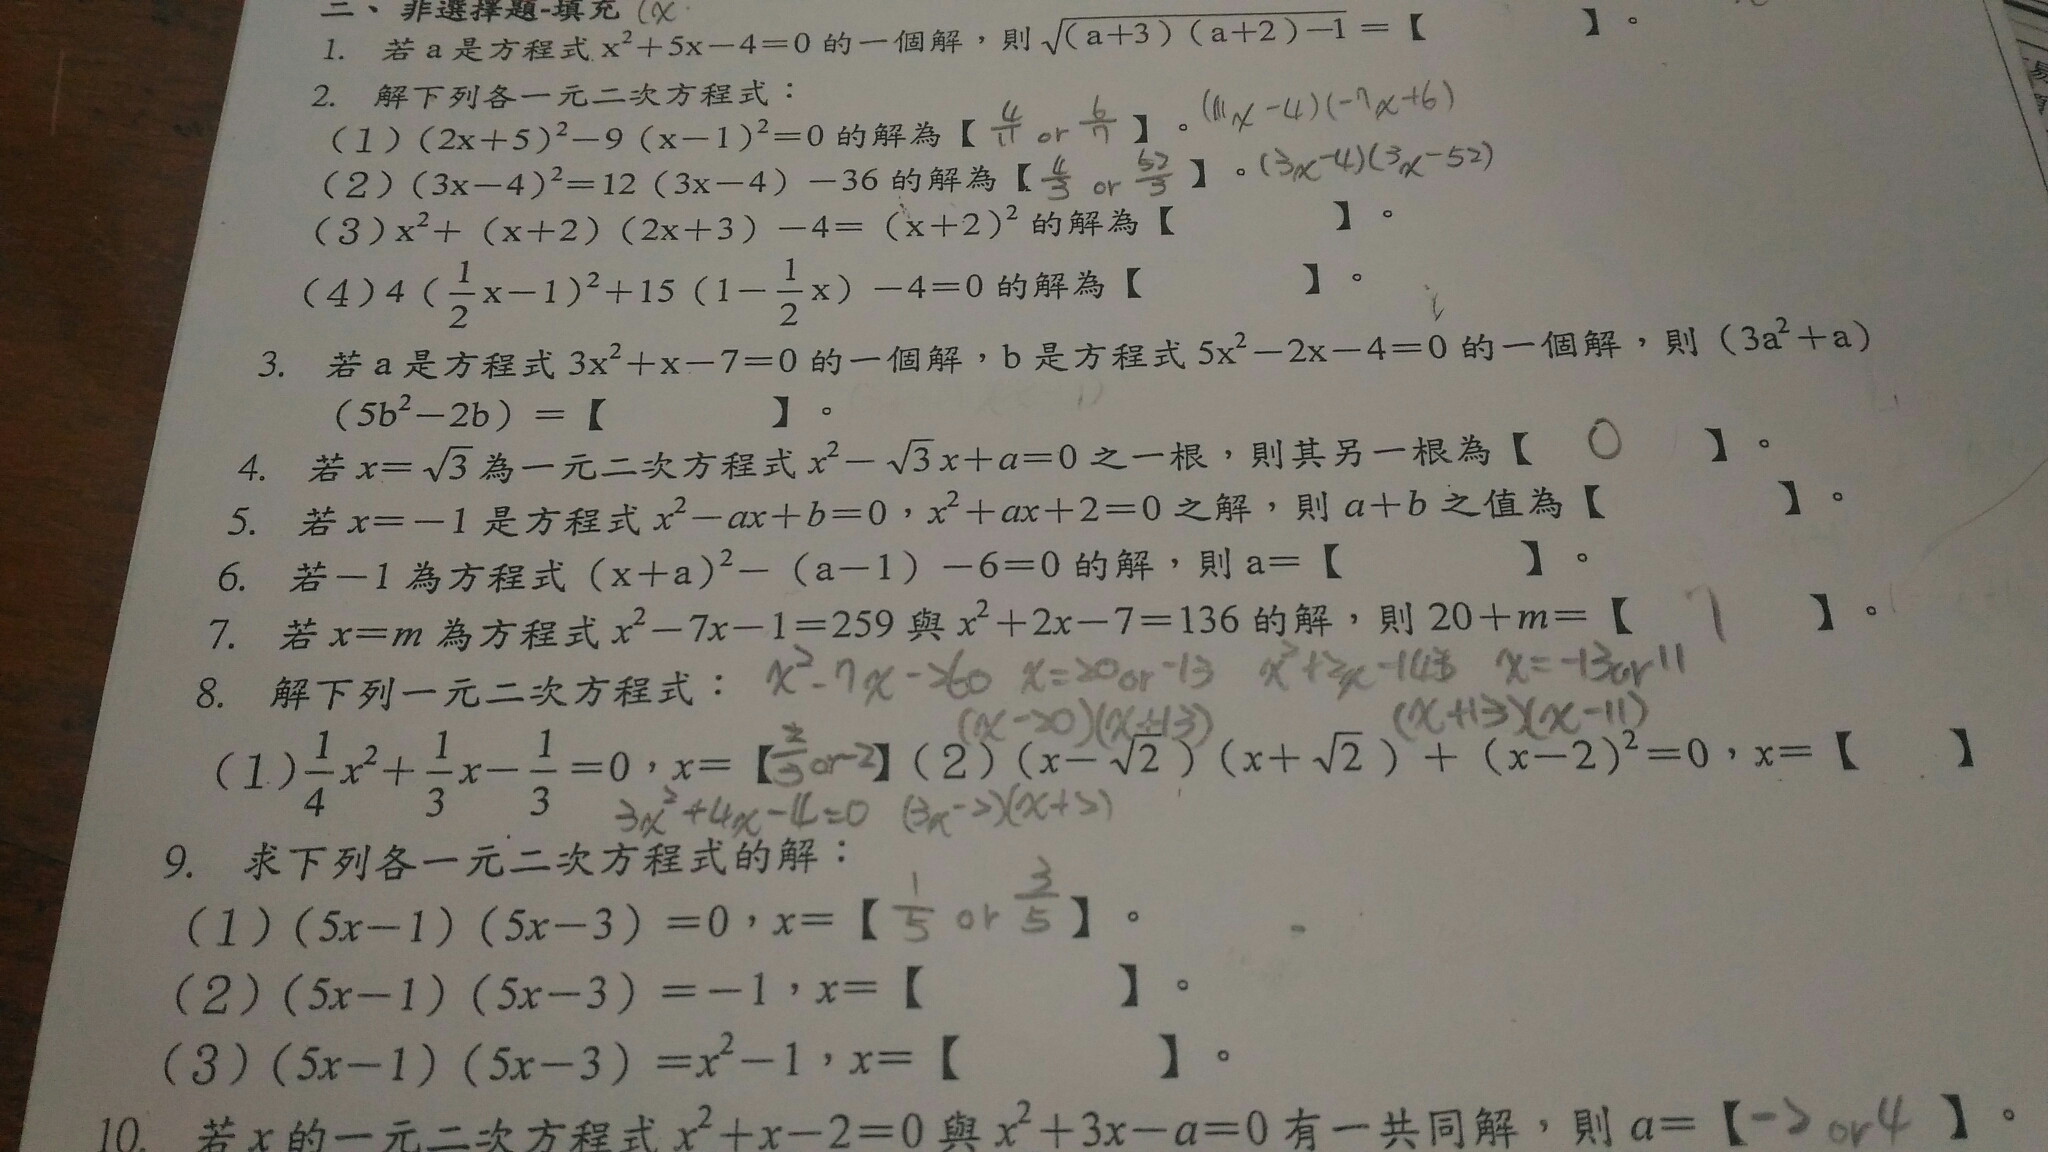 二、非選擇題-填充 (x
1. 若 a 是方程式 x²+5x-4=0 的一個解，則 √(a+3)(a+2)-1 =【 】。
2. 解下列各一元二次方程式：
(1) (2x+5)²-9 (x-1)²=0 的解為【 4/11 or 6/7 】。(11x-4)(-7x+6)
(2) (3x-4)²=12 (3x-4) -36 的解為【 4/3 or 52/3 】。(3x-4)(3x-52)
(3) x²+ (x+2) (2x+3) -4= (x+2)² 的解為【 】。
(4) 4 (1/2 x-1)²+15 (1-1/2 x) -4=0 的解為【 】。
3. 若 a 是方程式 3x²+x-7=0 的一個解，b 是方程式 5x²-2x-4=0 的一個解，則 (3a²+a)
(5b²-2b) =【 】。
4. 若 x=√3 為一元二次方程式 x²-√3x+a=0 之一根，則其另一根為【 0 】。
5. 若 x=-1 是方程式 x²-ax+b=0，x²+ax+2=0 之解，則 a+b 之值為【 】。
6. 若-1 為方程式 (x+a)²- (a-1) -6=0 的解，則 a=【 】。
7. 若 x=m 為方程式 x²-7x-1=259 與 x²+2x-7=136 的解，則 20+m=【 7 】。
x²-7x-260 x=20or-13 x²+2x-143 x=-13or11
8. 解下列一元二次方程式：
(x-20)(x+13) (x+13)(x-11)
(1) 1/4 x²+1/3 x-1/3=0，x=【2/3 or-2】(2) (x-√2) (x+√2) + (x-2)²=0，x=【 】
3x²+4x-4=0 (3x-2)(x+2)
9. 求下列各一元二次方程式的解：
(1) (5x-1) (5x-3) =0，x=【 1/5 or 3/5 】。
(2) (5x-1) (5x-3) =-1，x=【 】。
(3) (5x-1) (5x-3) =x²-1，x=【 】。
10. 若 x 的一元二次方程式 x²+x-2=0 與 x²+3x-a=0 有一共同解，則 a=【-2 or 4 】。